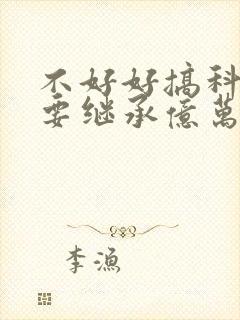 不好好搞科
要继承億萬
李漁